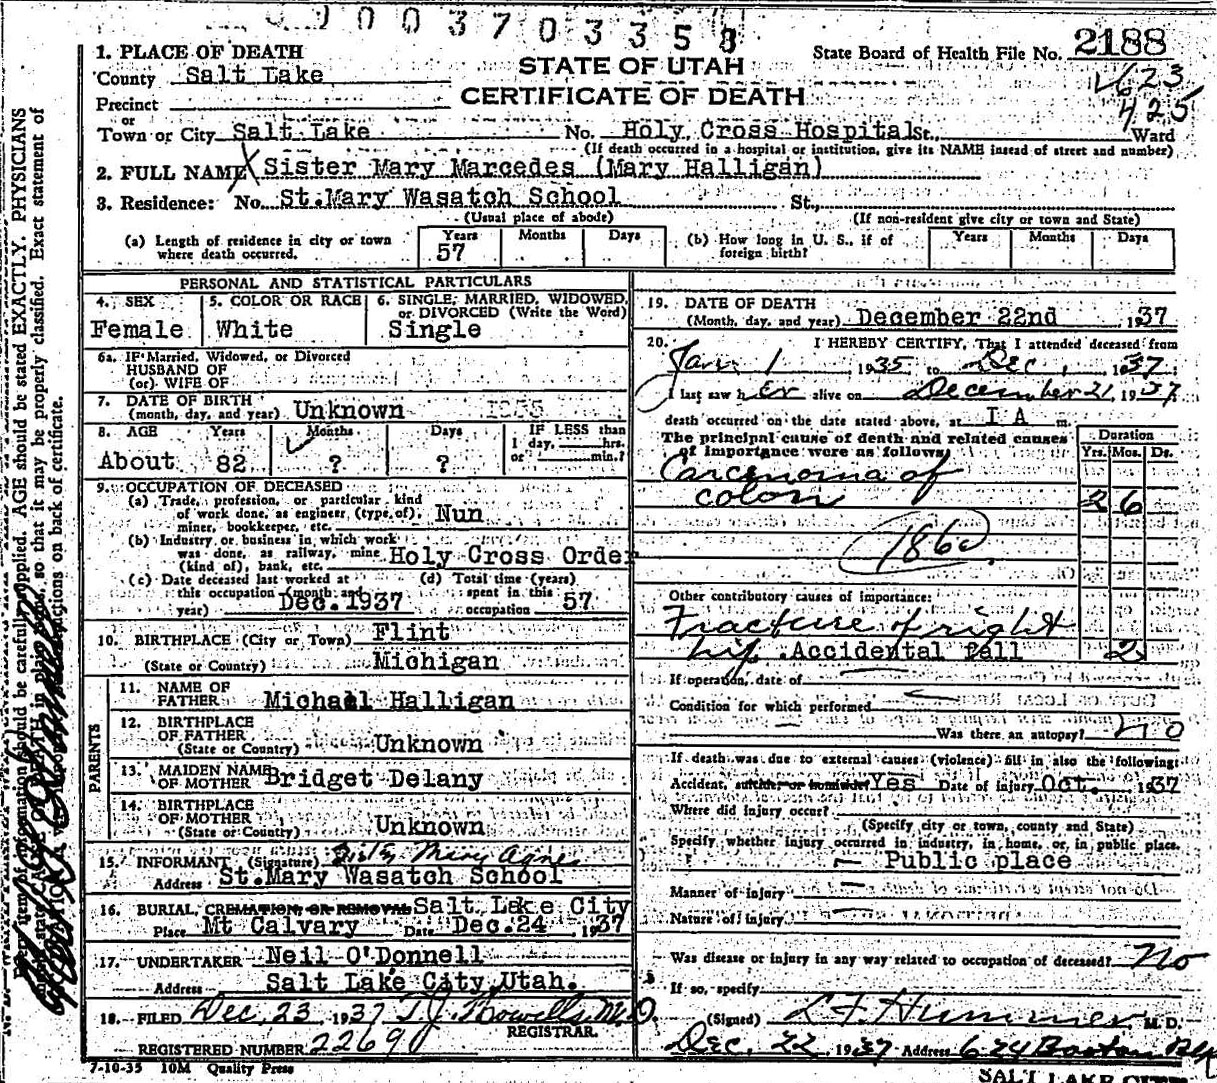 003703358
1. PLACE OF DEATH
STATE OF UTAH
State Board of Health File No. 2188
County Salt Lake
CERTIFICATE OF DEATH
V623
425
Precinct
or
Town or City Salt Lake No. Holy Cross Hospital St. Ward
(If death occurred in a hospital or institution, give its NAME instead of street and number)
2. FULL NAME X Sister Mary Marcedes (Mary Halligan)
3. Residence: No. St.Mary Wasatch School St.,
(Usual place of abode) (If non-resident give city or town and State)
(a) Length of residence in city or town where death occurred. Years 57 Months Days
(b) How long in U. S., if of foreign birth? Years Months Days
PERSONAL AND STATISTICAL PARTICULARS
4. SEX Female
5. COLOR OR RACE White
6. SINGLE, MARRIED, WIDOWED, or DIVORCED (Write the Word) Single
6a. IF Married, Widowed, or Divorced
HUSBAND OF
(or) WIFE OF
7. DATE OF BIRTH
(month, day, and year) Unknown 1855
8. AGE Years Months Days IF LESS than
1 day, hrs.
or min.?
About 82 ? ?
9. OCCUPATION OF DECEASED
(a) Trade, profession, or particular kind
of work done, as engineer, (type of),
miner, bookkeeper, etc. Nun
(b) Industry or business in which work
was done, as railway, mine
(kind of), bank, etc. Holy Cross Order
(c) Date deceased last worked at
this occupation (month and
year) Dec. 1937
(d) Total time (years)
spent in this
occupation 57
10. BIRTHPLACE (City or Town) Flint
(State or Country) Michigan
PARENTS
11. NAME OF
FATHER Michael Halligan
12. BIRTHPLACE
OF FATHER
(State or Country) Unknown
13. MAIDEN NAME
OF MOTHER Bridget Delany
14. BIRTHPLACE
OF MOTHER
(State or Country) Unknown
15. INFORMANT (Signature) Sister Mary Agnes
Address St.Mary Wasatch School
16. BURIAL, CREMATION, OR REMOVAL Salt Lake City
Place Mt Calvary Date Dec.24 1937
17. UNDERTAKER Neil O'Donnell
Address Salt Lake City,Utah.
18. FILED Dec, 23, 1937 T J Howells, M.D.
REGISTRAR.
REGISTERED NUMBER 22690
7-10-35 10M Quality Press
19. DATE OF DEATH
(Month, day, and year) December 22nd 1937
20. I HEREBY CERTIFY, That I attended deceased from
Jan. 1 1935 to Dec. 1937
I last saw her alive on December 21, 1937
death occurred on the date stated above, at 1 A m.
The principal cause of death and related causes
of importance were as follows:
Duration
Yrs. Mos. Ds.
Carcinoma of
colon 2 6
186a
Other contributory causes of importance:
Fracture of right
hip. Accidental fall 2
If operation, date of
Condition for which performed
Was there an autopsy? no
If death was due to external causes (violence) fill in also the following:
Accident, suicide, or homicide? Yes Date of injury Oct. 1937
Where did injury occur?
(Specify city or town, county and State)
Specify whether injury occurred in industry, in home, or in public place.
Public place
Manner of injury
Nature of injury
Was disease or injury in any way related to occupation of deceased? No
If so, specify
(Signed) L F Hummer, M. D.
Dec. 22 1937 Address 624 Boston Blk
SALT LAKE CITY